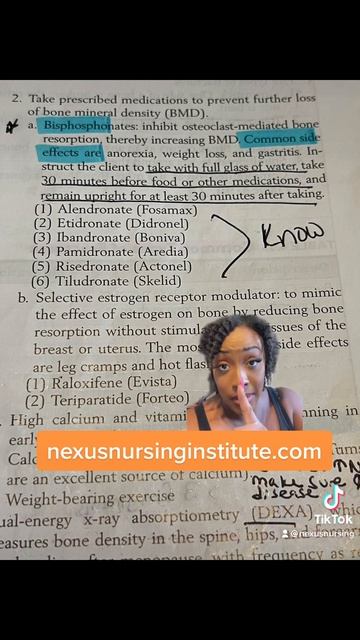 2. Take prescribed medications to prevent further loss
of bone mineral density (BMD).
a. Bisphosphonates: inhibit osteoclast-mediated bone
resorption, thereby increasing BMD. Common side
effects are anorexia, weight loss, and gastritis. In-
struct the client to take with full glass of water, take
30 minutes before food or other medications, and
remain upright for at least 30 minutes after taking.
(1) Alendronate (Fosamax)
(2) Etidronate (Didronel)
(3) Ibandronate (Boniva)
(4) Pamidronate (Aredia)
(5) Risedronate (Actonel)
(6) Tiludronate (Skelid)
Know
b. Selective estrogen receptor modulator: to mimic
the effect of estrogen on bone by reducing bone
resorption without stimula ssues of the
breast or uterus. The mos side effects
are leg cramps and hot flas
(1) Raloxifene (Evista)
(2) Teriparatide (Forteo)
High calcium and vitami nning in
early
nexusnursinginstitute.com
Calc Tums
are an excellent source of calcium)
make sure
disease
Weight-bearing exercise
ual-energy x-ray absorptiometry (DEXA) which
easures bone density in the spine, hips, and forearm
menopause, with frequency as
TikTok
@nexusnursing